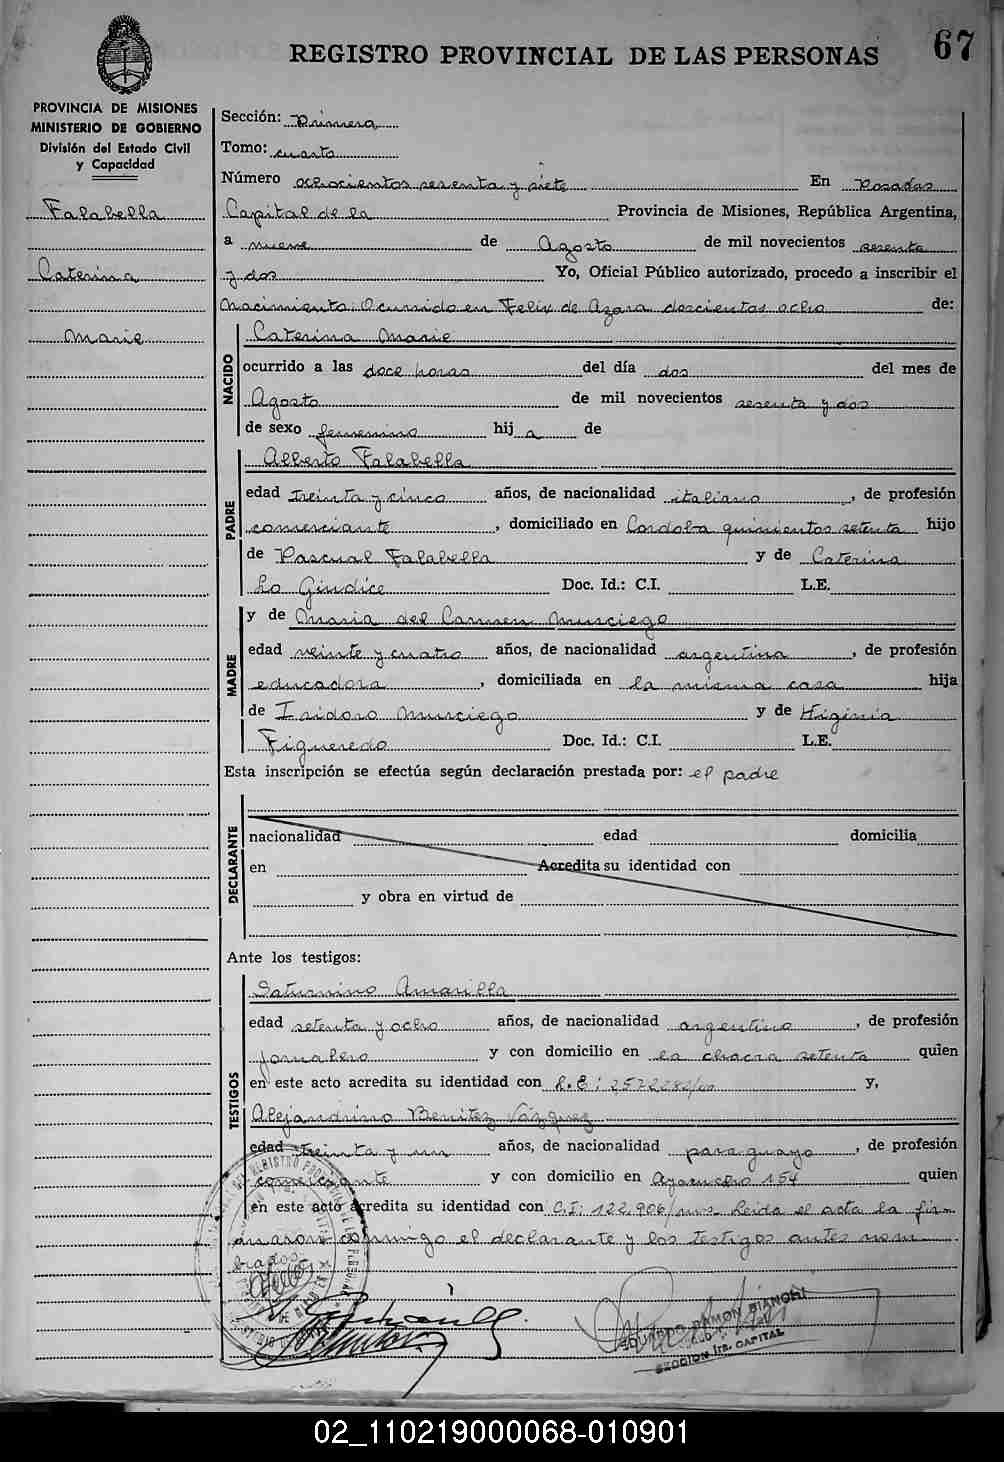 REGISTRO PROVINCIAL DE LAS PERSONAS
67
PROVINCIA DE MISIONES
MINISTERIO DE GOBIERNO
División del Estado Civil
y Capacidad
Falabella
Caterina
Marie
Sección: Primera
Tomo: cuarto
Número ochocientos sesenta y siete En Posadas
Capital de la Provincia de Misiones, República Argentina,
a nueve de Agosto de mil novecientos sesenta
y dos Yo, Oficial Público autorizado, procedo a inscribir el
Nacimiento Ocurrido en Felix de Azara doscientos ocho de:
NACIDO
Caterina Marie
ocurrido a las doce horas del día dos del mes de
Agosto de mil novecientos sesenta y dos
de sexo femenino hij a de
PADRE
Alberto Falabella
edad treinta y cinco años, de nacionalidad italiano, de profesión
comerciante, domiciliado en Cordoba quinientos setenta hijo
de Pascual Falabella y de Caterina
Lo Giudice Doc. Id.: C.I. L.E.
MADRE
y de Maria del Carmen Murciego
edad veinte y cuatro años, de nacionalidad argentina, de profesión
educadora, domiciliada en la misma casa hija
de Isidoro Murciego y de Higinia
Figueredo Doc. Id.: C.I. L.E.
Esta inscripción se efectúa según declaración prestada por: el padre
DECLARANTE
nacionalidad edad domicilia
en Acredita su identidad con
y obra en virtud de
Ante los testigos:
TESTIGOS
Saturnino Amarilla
edad setenta y ocho años, de nacionalidad argentino, de profesión
jornalero y con domicilio en la chacra setenta quien
en este acto acredita su identidad con L.E: y,
Alejandrino Benitez Vázquez
edad treinta y un años, de nacionalidad paraguayo, de profesión
comerciante y con domicilio en Ayacucho 154 quien
en este acto acredita su identidad con C.I: 122.906/mis. Leida el acta la firmaron conmigo el declarante y los testigos antes nom
brados
EDUARDO RAMON BIANCHI
SECCION 1ra. CAPITAL
02_110219000068-010901